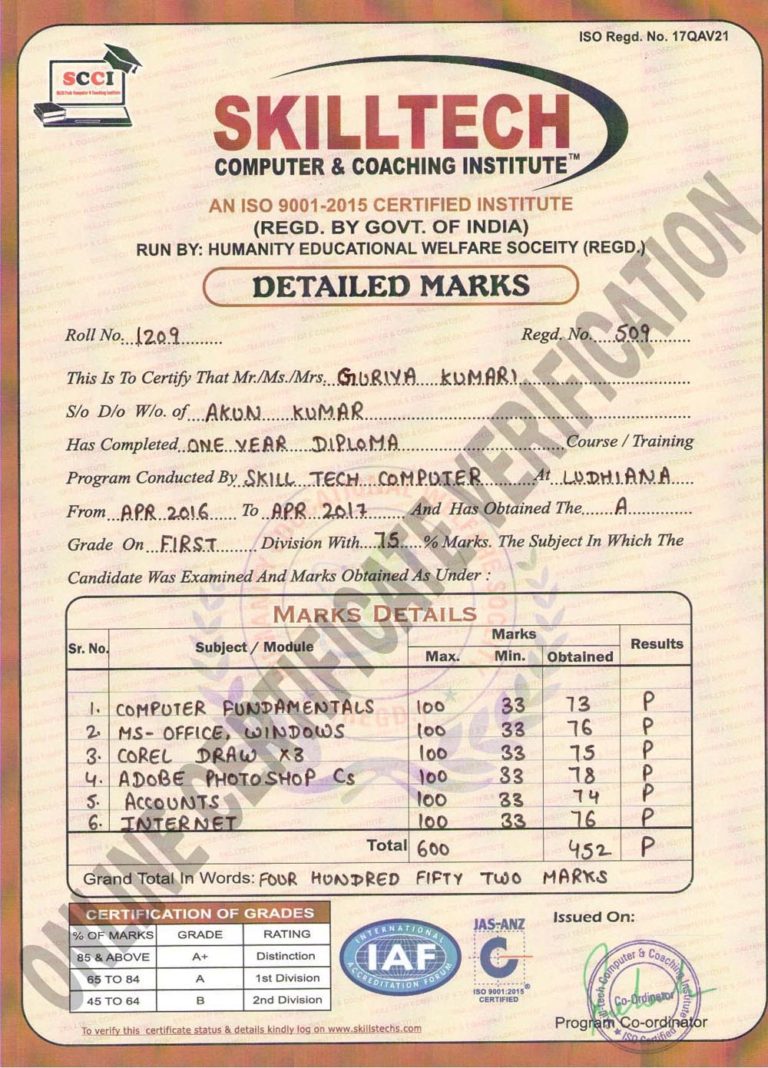 ISO Regd. No. 17QAV21
SCCI
SKILLTECH
COMPUTER & COACHING INSTITUTE™
AN ISO 9001-2015 CERTIFIED INSTITUTE
(REGD. BY GOVT. OF INDIA)
RUN BY: HUMANITY EDUCATIONAL WELFARE SOCEITY (REGD.)
DETAILED MARKS
Roll No. 1209 Regd. No. 509
This Is To Certify That Mr./Ms./Mrs. GURIYA KUMARI
S/o D/o W/o. of AKUN KUMAR
Has Completed ONE YEAR DIPLOMA Course / Training
Program Conducted By SKILL TECH COMPUTER At LUDHIANA
From APR 2016 To APR 2017 And Has Obtained The A
Grade On FIRST Division With 75 % Marks. The Subject In Which The
Candidate Was Examined And Marks Obtained As Under :
MARKS DETAILS
Sr. No. Subject / Module Marks Results
Max. Min. Obtained
1. COMPUTER FUNDAMENTALS 100 33 73 P
2. MS-OFFICE, WINDOWS 100 33 76 P
3. COREL DRAW X3 100 33 75 P
4. ADOBE PHOTOSHOP Cs 100 33 78 P
5. ACCOUNTS 100 33 74 P
6. INTERNET 100 33 76 P
Total 600 452 P
Grand Total In Words: FOUR HUNDRED FIFTY TWO MARKS
CERTIFICATION OF GRADES
% OF MARKS GRADE RATING
85 & ABOVE A+ Distinction
65 TO 84 A 1st Division
45 TO 64 B 2nd Division
INTERNATIONAL
IAF
ACCREDITATION FORUM
JAS-ANZ
C
ISO 9001:2015
CERTIFIED
Issued On:
Co-Ordinator
ISO Certified
Program Co-ordinator
To verify this certificate status & details kindly log on www.skilltechs.com
ONLINE CERTIFICATE VERIFICATION